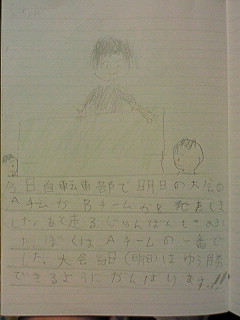 今日自転車部で明日の大会の
AチームかBチームかを発表しま
した。あと走るじゅんばんも
した。ぼくはAチームの一番で
した。大会当日(明日)はゆう勝
できるようにがんばります!!